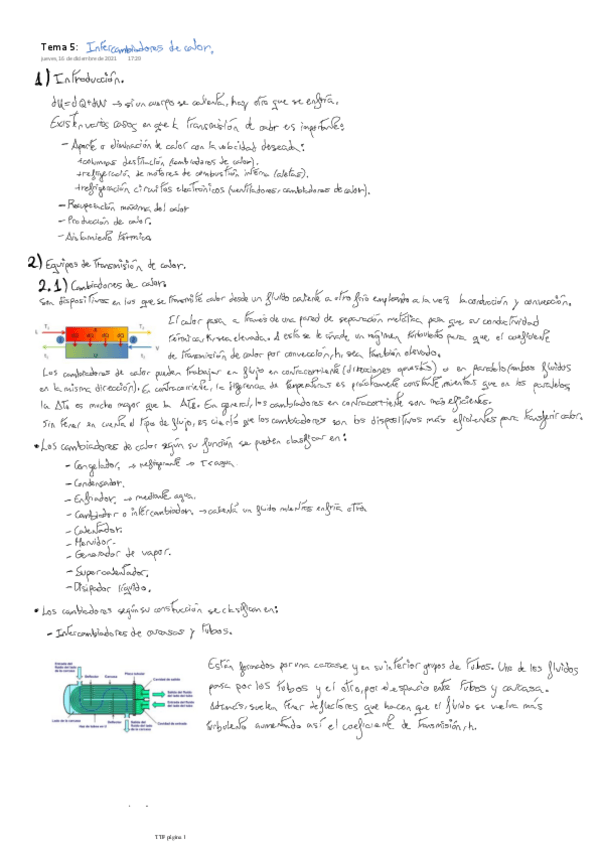 Tema 5: Intercambiadores de calor.
jueves, 16 de diciembre de 2021 17:20
1) Introducción.
dU=dQ+dW → si un cuerpo se calienta, hay otro que se enfría.
Existen varios casos en que la transmisión de calor es importante:
- Aporte o eliminación de calor con la velocidad deseada:
+columnas destilación (cambiadores de calor).
+refrigeración de motores de combustión interna (aletas).
+refrigeración circuitos electrónicos (ventiladores, cambiadores de calor).
- Recuperación máxima del calor
- Producción de calor.
- Aislamiento térmico
2) Equipos de transmisión de calor.
2.1) Cambiadores de calor
Son dispositivos en los que se transmite calor desde un fluido caliente a otro frío empleando a la vez la conducción y convección.
El calor pasa a través de una pared de separación metálica para que su conductividad
térmica, k, sea elevada. A esta se le añade un régimen turbulento para que el coeficiente
de transmisión de calor por convección, h, sea también elevado.
Los cambiadores de calor pueden trabajar en flujo en contracorriente (direcciones opuestas) o en paralelo (ambos fluidos
en la misma dirección). En contracorriente, la diferencia de temperaturas es prácticamente constante mientras que en los paralelos,
la ΔTa es mucho mayor que la ΔTb. En general, los cambiadores en contracorriente son más eficientes.
Sin tener en cuenta el tipo de flujo, es cierto que los cambiadores son los dispositivos más eficientes para transferir calor.
• Los cambiadores de calor según su función se pueden clasificar en:
- Congelador, → refrigerante → T<agua
- Condensador.
- Enfriador, → mediante agua.
- Cambiador o intercambiador, → calienta un fluido mientras enfría otro
- Calentador.
- Hervidor.
- Generador de vapor.
- Supercalentador.
- Disipador líquido.
• Los cambiadores según su construcción se clasifican en:
- Intercambiadores de carcasas y tubos.
Están formados por una carcasa y en su interior grupos de tubos. Uno de los fluidos
pasa por los tubos y el otro, por el espacio entre tubos y carcasa.
Además, suelen tener deflectores que hacen que el fluido se vuelva más
turbulento aumentando así el coeficiente de transmisión, h.
TTF página 1